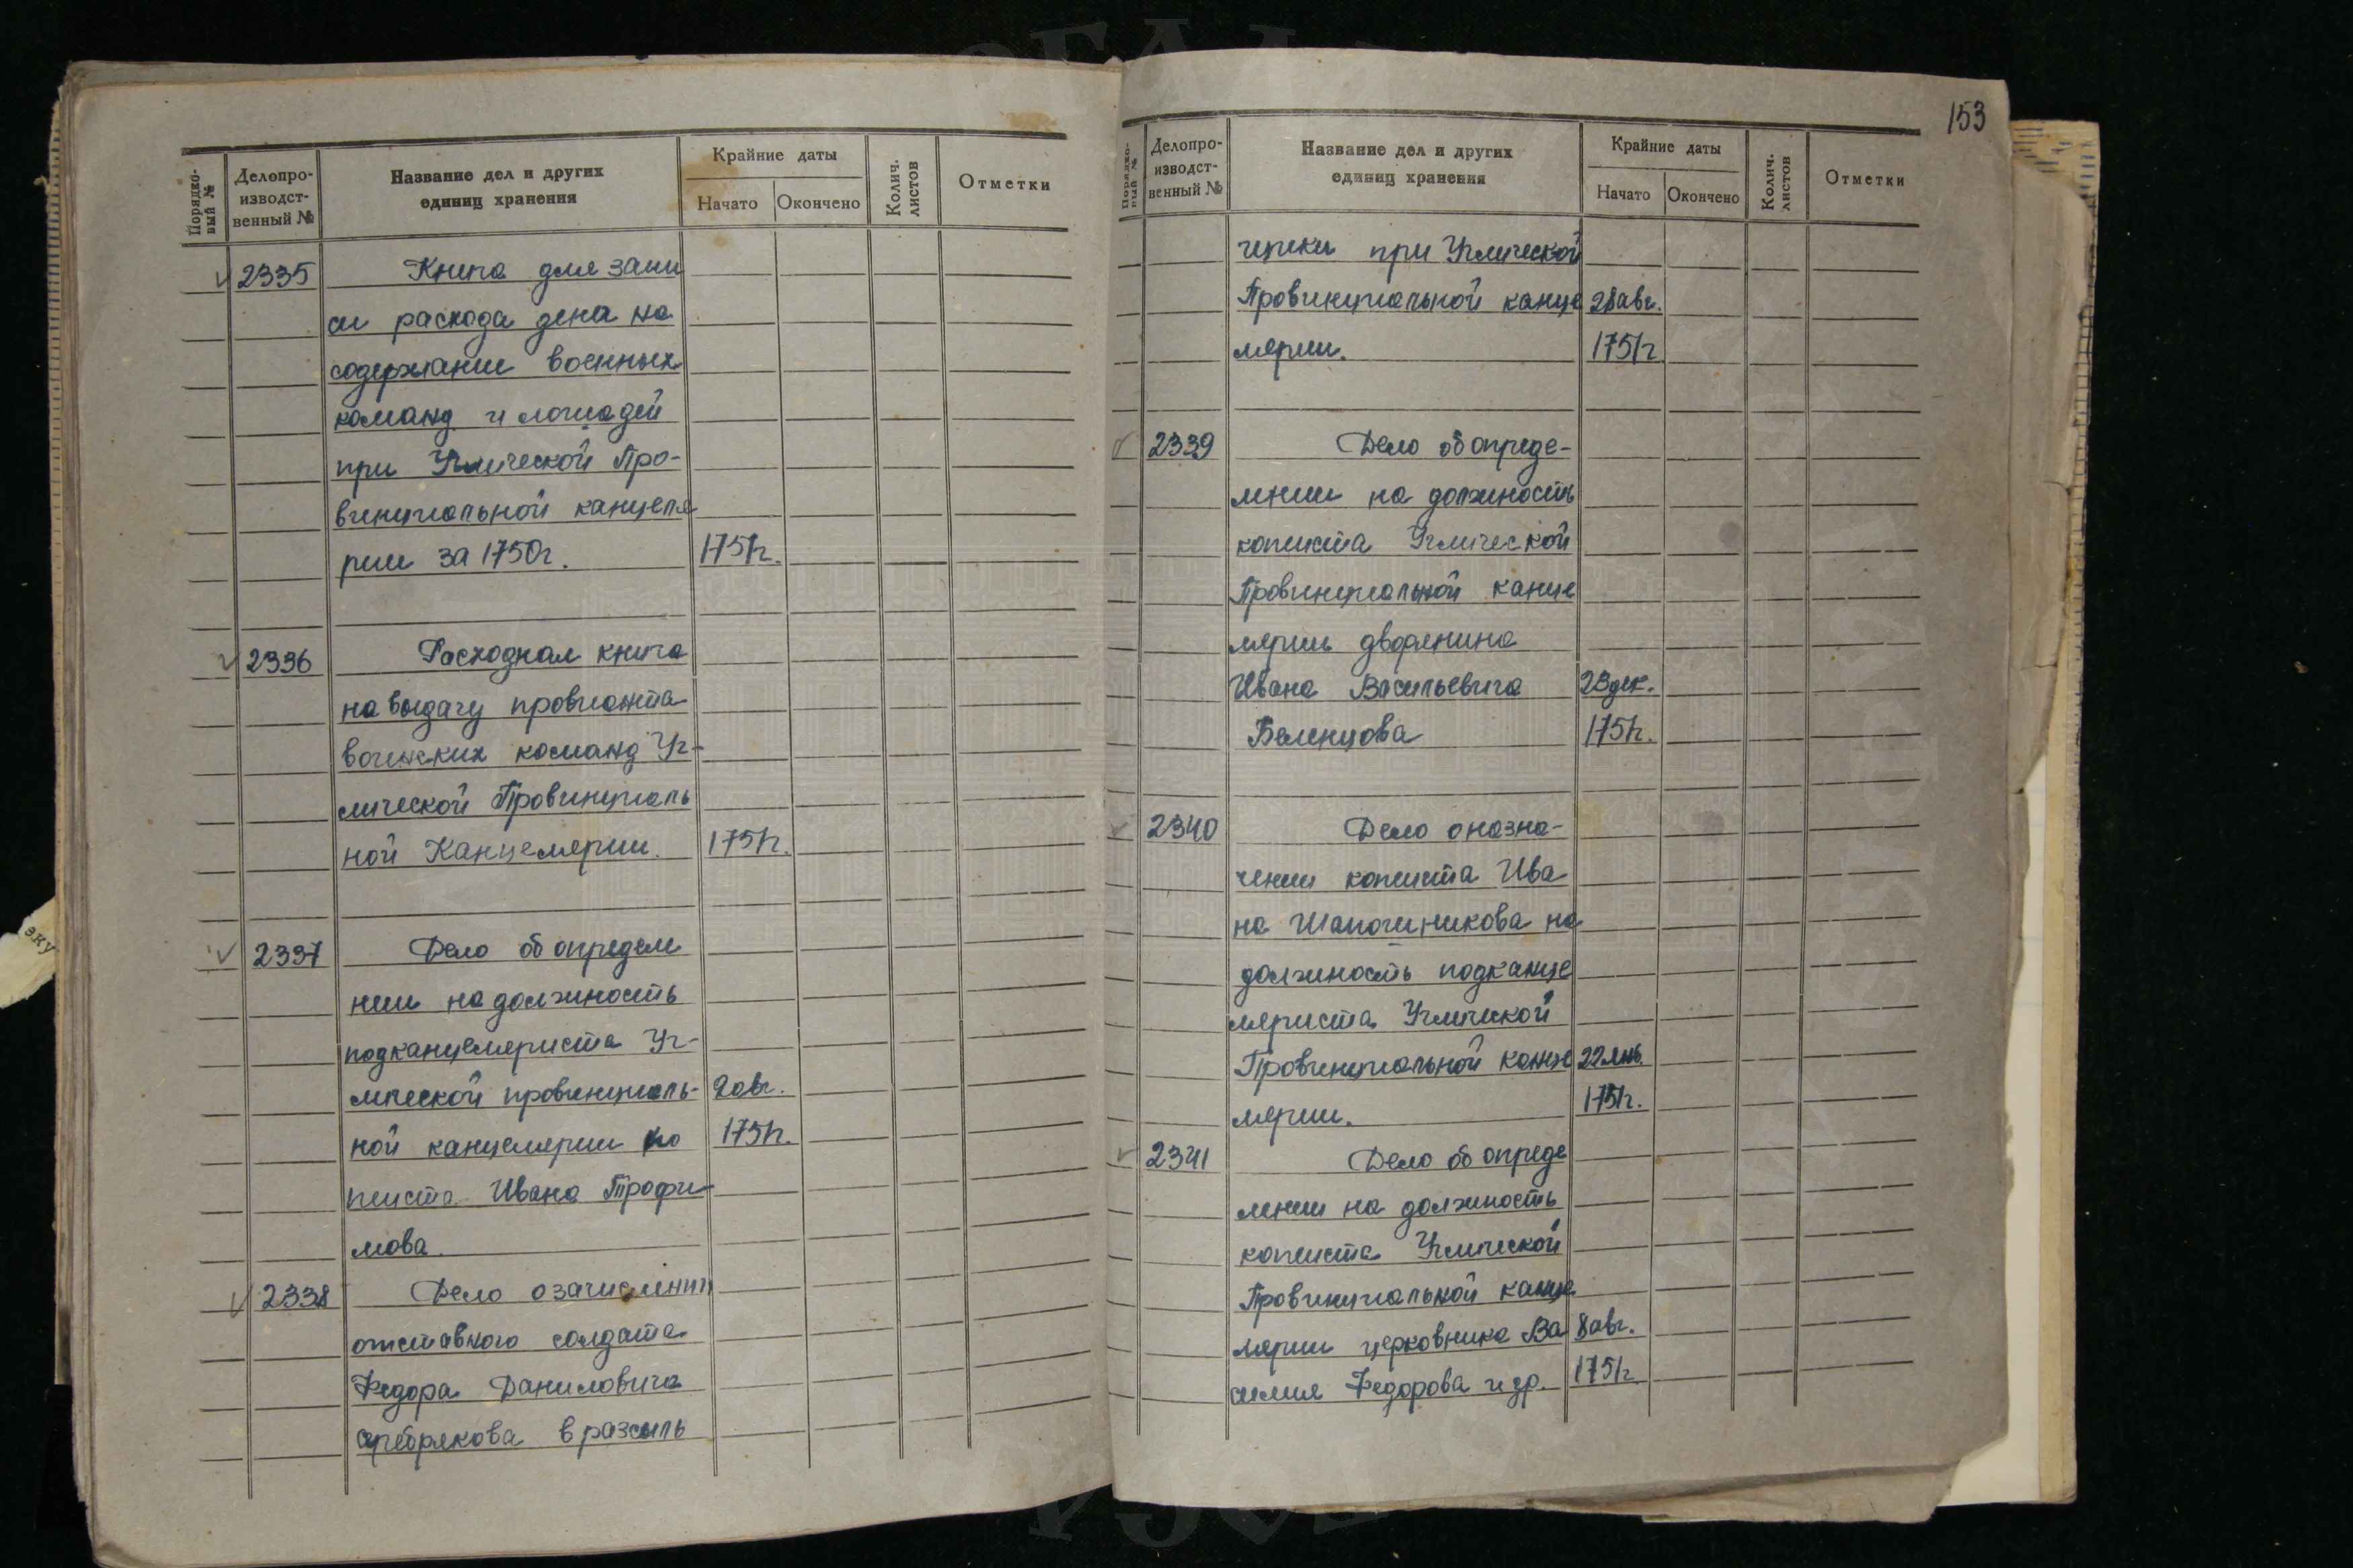 Порядко-
вый №
Делопро-
изводст-
венный №
Название дел и других
единиц хранения
Крайние даты
Начато
Окончено
Колич.
листов
Отметки
2335 Книга для запи
си расхода дена на
содержание военных
команд и лошадей
при Угличской Про-
винциальной канцеля
рии за 1750г. 1751г.
2336 Расходная книга
на выдачу провианта
воинских команд Уг-
личской Провинциаль
ной Канцелярии. 1751г.
2337 Дело об определе
нии на должность
подканцеляриста Уг-
личской провинциаль- 2авг.
ной канцелярии ко 1751г.
пииста Ивана Трофи-
мова
2338 Дело о зачислении
отставного солдата
Федора Даниловича
Серебрякова в разсыль
153
Порядко-
вый №
Делопро-
изводст-
венный №
Название дел и других
единиц хранения
Крайние даты
Начато
Окончено
Колич.
листов
Отметки
щики при Угличской
Провинциальной канце 28авг.
лярии. 1751г
2339 Дело об опреде-
лении на должность
копииста Угличской
Провинциальной канце
лярии дворянина
Ивана Васильевича 23дек.
Беленцова 1751г.
2340 Дело о назна-
чении копииста Ива
на Шапошникова на
должность подканце
ляриста Угличской
Провинциальной канце 22янв.
лярии. 1751г.
2341 Дело об опреде
лении на должность
копииста Угличской
Провинциальной канце
лярии церковника Ва 8авг.
силия Федорова и др. 1751г.
эку